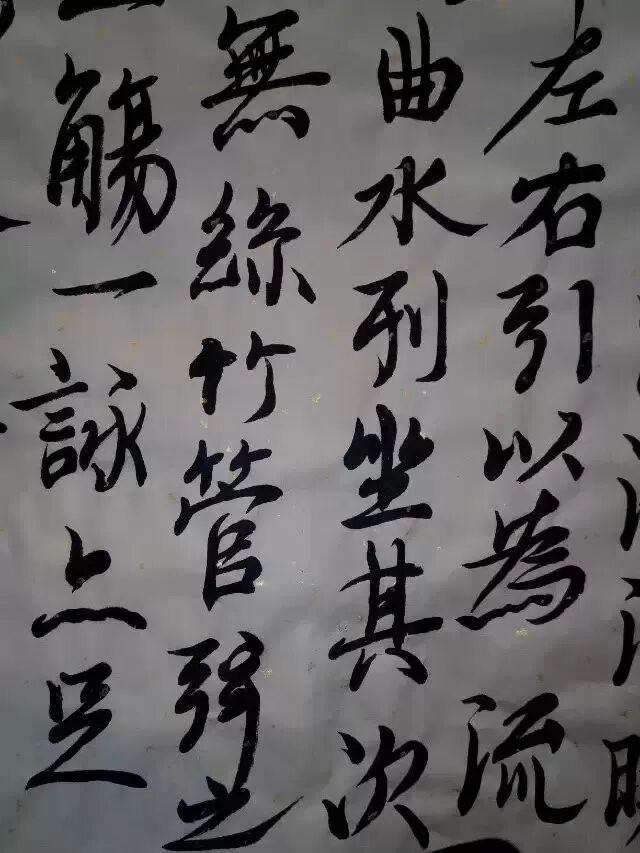 左右引以為流
曲水列坐其次
無絲竹管弦之
觴一詠亦足